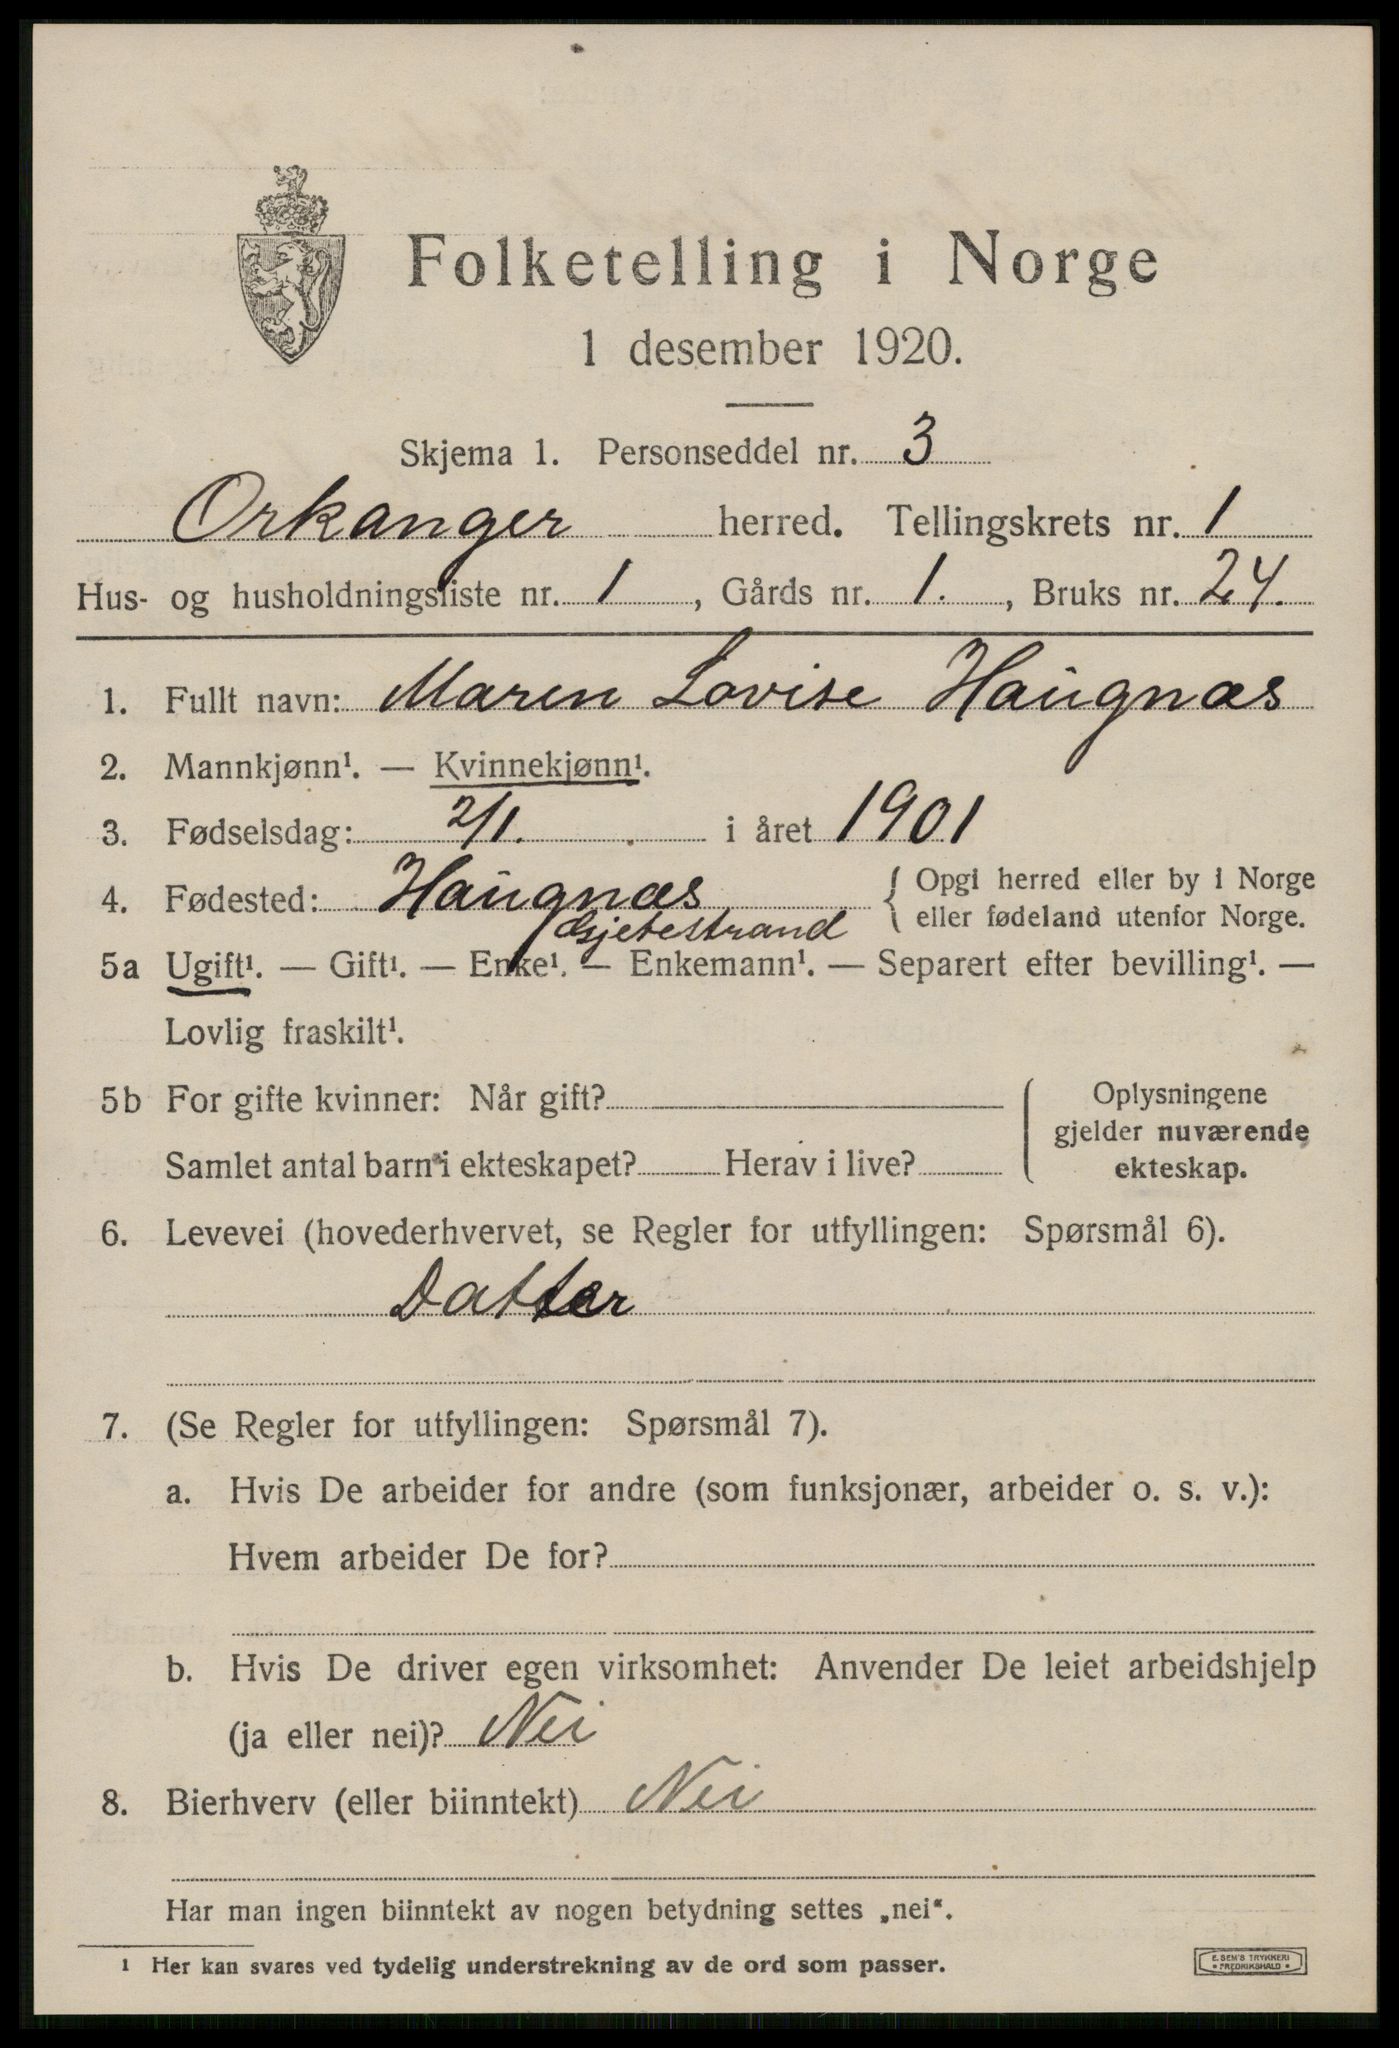 Folketelling i Norge
1 desember 1920.
Skjema 1. Personseddel nr. 3
Orkanger herred. Tellingskrets nr. 1
Hus- og husholdningsliste nr. 1, Gårds nr. 1., Bruks nr. 24.
1. Fullt navn: Maren Lovise Haugnæs
2. Mannkjønn¹. — Kvinnekjønn¹.
3. Fødselsdag: 2/1. i året 1901
4. Fødested: Haugnæs { Opgi herred eller by i Norge
eller fødeland utenfor Norge.
Gjetestrand
5a Ugift¹. — Gift¹. — Enke¹. — Enkemann¹. — Separert efter bevilling¹. —
Lovlig fraskilt¹.
5b For gifte kvinner: Når gift?
Samlet antal barn i ekteskapet? Herav i live?
Oplysningene
gjelder nuværende
ekteskap.
6. Levevei (hovederhvervet, se Regler for utfyllingen: Spørsmål 6).
Datter
7. (Se Regler for utfyllingen: Spørsmål 7).
a. Hvis De arbeider for andre (som funksjonær, arbeider o. s. v.):
Hvem arbeider De for?
b. Hvis De driver egen virksomhet: Anvender De leiet arbeidshjelp
(ja eller nei)? Nei
8. Bierhverv (eller biinntekt) Nei
Har man ingen biinntekt av nogen betydning settes „nei“.
1 Her kan svares ved tydelig understrekning av de ord som passer.
E. SEM'S TRYKKERI
• FREDRIKSHALD •